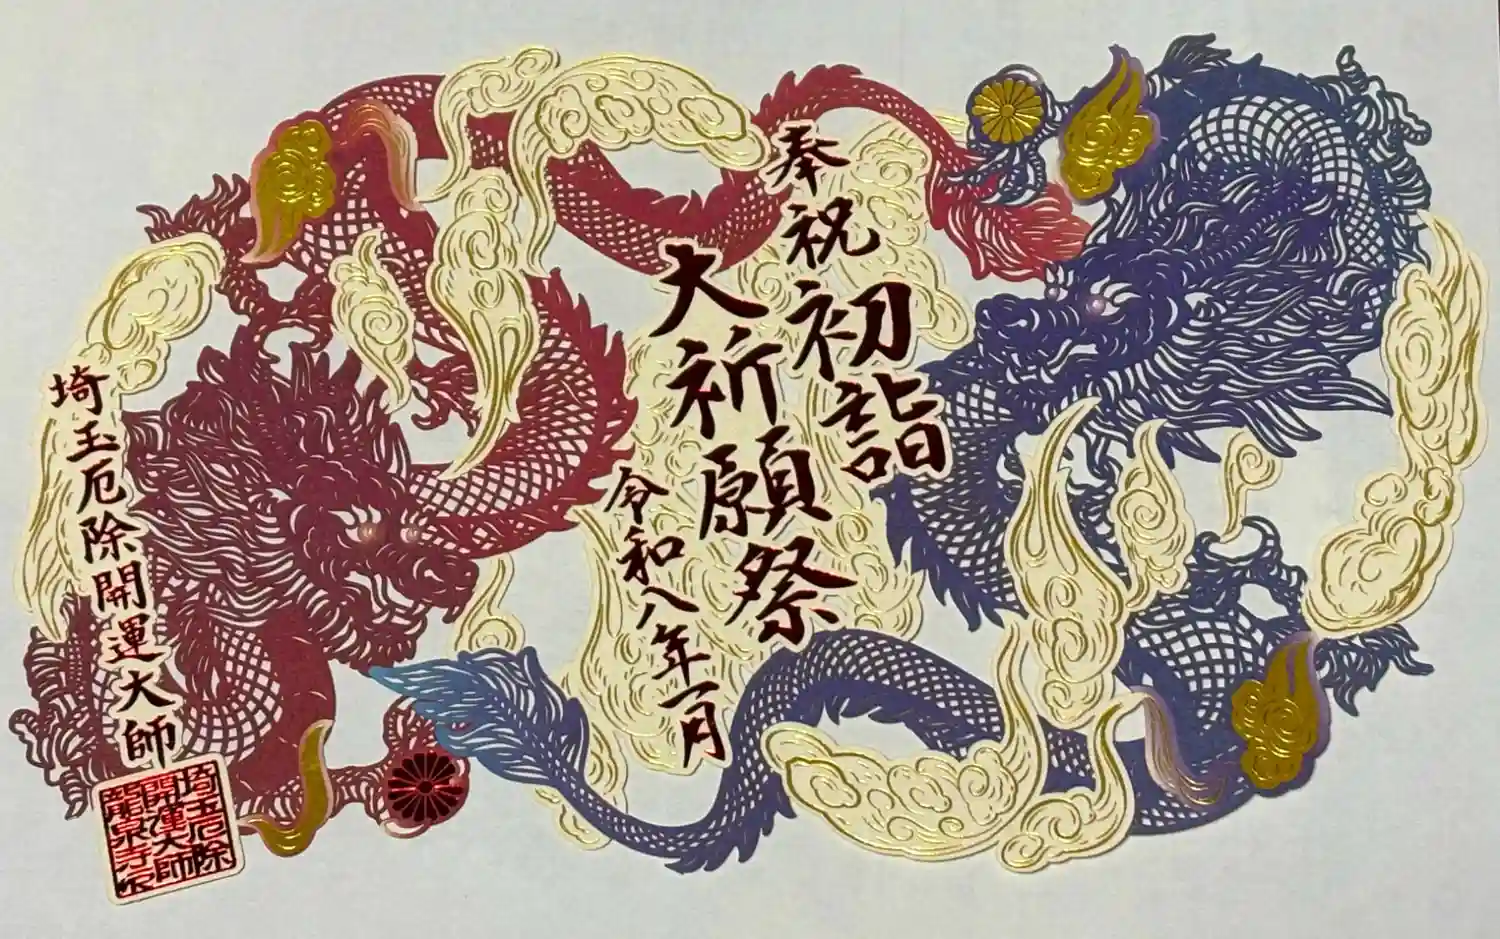 奉祝 初詣
大祈願祭
令和八年一月
埼玉厄除開運大師
埼玉厄除
開運大師
龍泉寺印